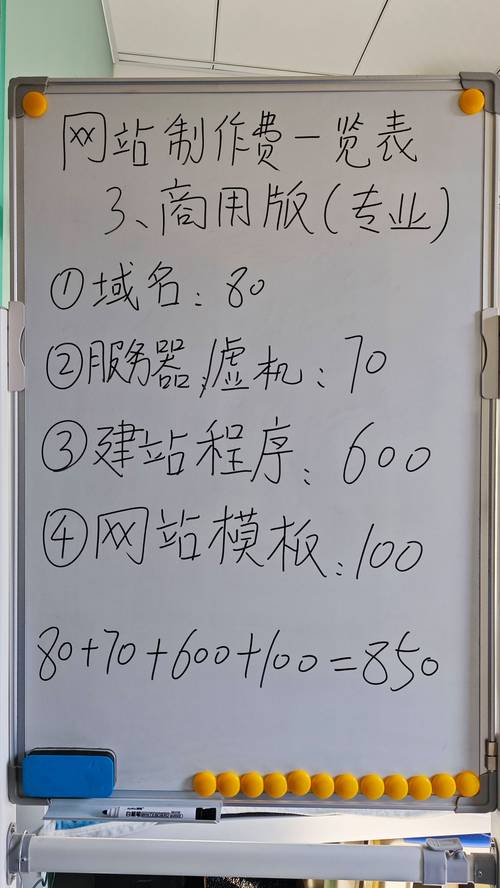 网站制作费一览表
3、商用版(专业)
①域名: 80
②服务器,虚机: 70
③建站程序: 600
④网站模板: 100
80+70+600+100=850
白板笔 WHITEBOARD MARKER